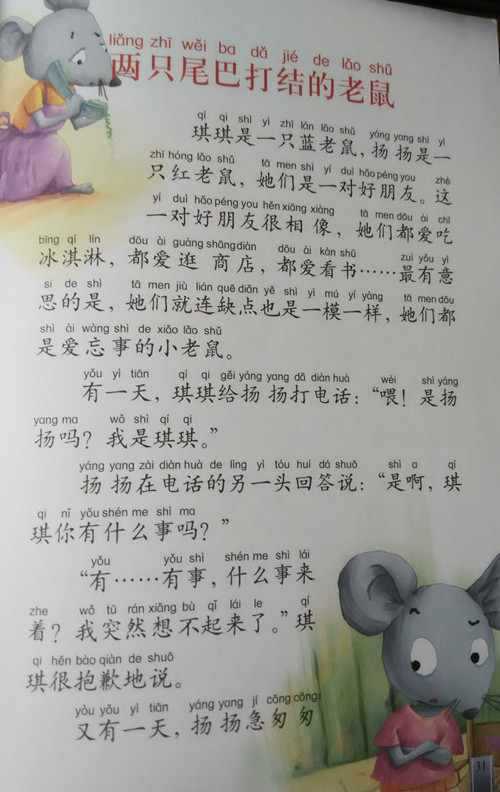 liǎng zhī wěi ba dǎ jié de lǎo shǔ
两只尾巴打结的老鼠
qí qi shì yì zhī lán lǎo shǔ yáng yang shì yì
琪琪是一只蓝老鼠，扬扬是一
zhī hóng lǎo shǔ tā men shì yí duì hǎo péng you zhè
只红老鼠，她们是一对好朋友。这
yí duì hǎo péng you hěn xiāng xiàng tā men dōu ài chī
一对好朋友很相像，她们都爱吃
bīng qí lín dōu ài guàng shāng diàn dōu ài kàn shū zuì yǒu yì
冰淇淋，都爱逛商店，都爱看书……最有意
si de shì tā men jiù lián quē diǎn yě shì yì mú yí yàng tā men dōu
思的是，她们就连缺点也是一模一样，她们都
shì ài wàng shì de xiǎo lǎo shǔ
是爱忘事的小老鼠。
yǒu yì tiān qí qi gěi yáng yang dǎ diàn huà wèi shì yáng
有一天，琪琪给扬扬打电话：“喂！是扬
yang ma wǒ shì qí qi
扬吗？我是琪琪。”
yáng yang zài diàn huà de lìng yì tóu huí dá shuō shì a qí
扬扬在电话的另一头回答说：“是啊，琪
qi nǐ yǒu shén me shì ma
琪你有什么事吗？”
yǒu yǒu shì shén me shì lái
“有……有事，什么事来
zhe wǒ tū rán xiǎng bù qǐ lái le qí
着？我突然想不起来了。”琪
qi hěn bào qiàn de shuō
琪很抱歉地说。
yòu yǒu yì tiān yáng yang jí cōng cōng
又有一天，扬扬急匆匆
31